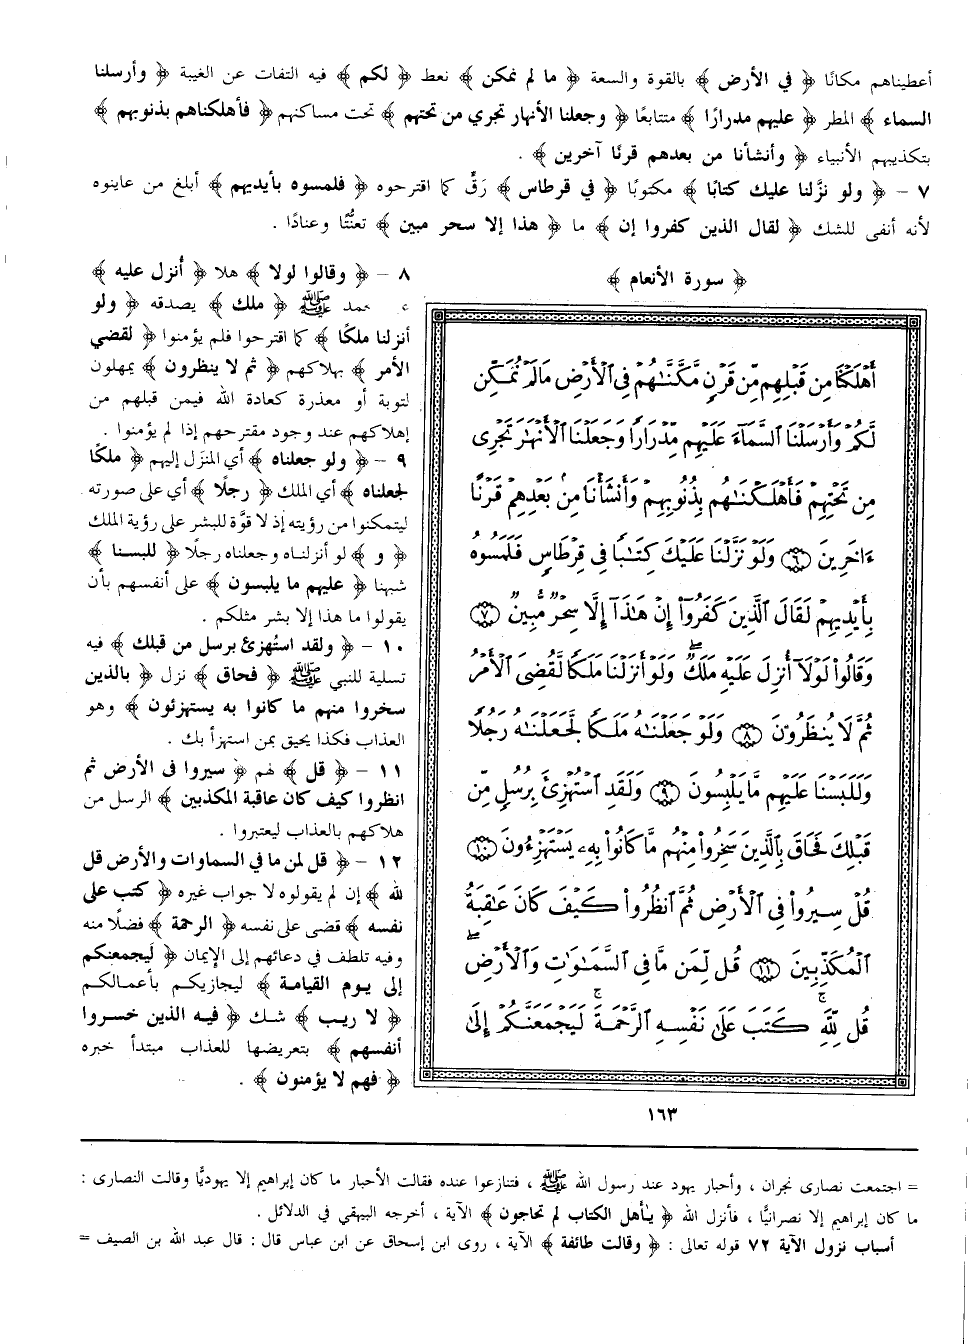 أعطيناهم مكانًا ﴿ في الأرض ﴾ بالقوة والسعة ﴿ ما لم نمكن ﴾ نعط ﴿ لكم ﴾ فيه التفات عن الغيبة ﴿ وأرسلنا
السماء ﴾ المطر ﴿ عليهم مدرارًا ﴾ متتابعًا ﴿ وجعلنا الأنهار تجري من تحتهم ﴾ تحت مساكنهم ﴿ فأهلكناهم بذنوبهم ﴾
بتكذيبهم الأنبياء ﴿ وأنشأنا من بعدهم قرنًا آخرين ﴾ .
٧ – ﴿ ولو نزَّلنا عليك كتابًا ﴾ مكتوبًا ﴿ في قرطاس ﴾ رَقٍّ كما اقترحوه ﴿ فلمسوه بأيديهم ﴾ أبلغ من عاينوه
لأنه أنفى للشك ﴿ لقال الذين كفروا إن ﴾ ما ﴿ هذا إلا سحر مبين ﴾ تعنُّتًا وعنادًا .
﴿ سورة الأنعام ﴾
أَهْلَكْنَا مِن قَبْلِهِم مِّن قَرْنٍ مَّكَّنَّٰهُمْ فِي ٱلْأَرْضِ مَا لَمْ نُمَكِّن
لَّكُمْ وَأَرْسَلْنَا ٱلسَّمَآءَ عَلَيْهِم مِّدْرَارًا وَجَعَلْنَا ٱلْأَنْهَٰرَ تَجْرِى
مِن تَحْتِهِمْ فَأَهْلَكْنَٰهُم بِذُنُوبِهِمْ وَأَنشَأْنَا مِنۢ بَعْدِهِمْ قَرْنًا
ءَاخَرِينَ ٦ وَلَوْ نَزَّلْنَا عَلَيْكَ كِتَٰبًا فِى قِرْطَاسٍ فَلَمَسُوهُ
بِأَيْدِيهِمْ لَقَالَ ٱلَّذِينَ كَفَرُوٓا۟ إِنْ هَٰذَآ إِلَّا سِحْرٌ مُّبِينٌ ٧
وَقَالُوا۟ لَوْلَآ أُنزِلَ عَلَيْهِ مَلَكٌ ۖ وَلَوْ أَنزَلْنَا مَلَكًا لَّقُضِىَ ٱلْأَمْرُ
ثُمَّ لَا يُنظَرُونَ ٨ وَلَوْ جَعَلْنَٰهُ مَلَكًا لَّجَعَلْنَٰهُ رَجُلًا
وَلَلَبَسْنَا عَلَيْهِم مَّا يَلْبِسُونَ ٩ وَلَقَدِ ٱسْتُهْزِئَ بِرُسُلٍ مِّن
قَبْلِكَ فَحَاقَ بِٱلَّذِينَ سَخِرُوا۟ مِنْهُم مَّا كَانُوا۟ بِهِۦ يَسْتَهْزِءُونَ ١٠
قُلْ سِيرُوا۟ فِى ٱلْأَرْضِ ثُمَّ ٱنظُرُوا۟ كَيْفَ كَانَ عَٰقِبَةُ
ٱلْمُكَذِّبِينَ ١١ قُل لِّمَن مَّا فِى ٱلسَّمَٰوَٰتِ وَٱلْأَرْضِ ۖ
قُل لِّلَّهِ ۚ كَتَبَ عَلَىٰ نَفْسِهِ ٱلرَّحْمَةَ ۚ لَيَجْمَعَنَّكُمْ إِلَىٰ
١٦٣
٨ – ﴿ وقالوا لولا ﴾ هلا ﴿ أُنزل عليه ﴾
محمد ﷺ ﴿ ملك ﴾ يصدقه ﴿ ولو
أنزلنا ملكًا ﴾ كما اقترحوا فلم يؤمنوا ﴿ لقضي
الأمر ﴾ بهلاكهم ﴿ ثم لا ينظرون ﴾ يمهلون
لتوبة أو معذرة كعادة الله فيمن قبلهم من
إهلاكهم عند وجود مقترحهم إذا لم يؤمنوا .
٩ – ﴿ ولو جعلناه ﴾ أي المنزَل إليهم ﴿ ملكًا
لجعلناه ﴾ أي الملك ﴿ رجلًا ﴾ أي على صورته
ليتمكنوا من رؤيته إذ لا قوَّة للبشر على رؤية الملك
﴿ و ﴾ لو أنزلناه وجعلناه رجلًا ﴿ للبسنا ﴾
شبهنا ﴿ عليهم ما يلبسون ﴾ على أنفسهم بأن
يقولوا ما هذا إلا بشر مثلكم .
١٠ – ﴿ ولقد استُهزئ برسل من قبلك ﴾ فيه
تسلية للنبي ﷺ ﴿ فحاق ﴾ نزل ﴿ بالذين
سخروا منهم ما كانوا به يستهزئون ﴾ وهو
العذاب فكذا يحيق بمن استهزأ بك .
١١ – ﴿ قل ﴾ لهم ﴿ سيروا في الأرض ثم
انظروا كيف كان عاقبة المكذبين ﴾ الرسل من
هلاكهم بالعذاب ليعتبروا .
١٢ – ﴿ قل لمن ما في السماوات والأرض قل
لله ﴾ إن لم يقولوه لا جواب غيره ﴿ كتب على
نفسه ﴾ قضى على نفسه ﴿ الرحمة ﴾ فضلًا منه
وفيه تلطف في دعائهم إلى الإيمان ﴿ لَيجمعنكم
إلى يوم القيامة ﴾ ليجازيكم بأعمالكم
﴿ لا ريب ﴾ شك ﴿ فيه الذين خسروا
أنفسهم ﴾ بتعريضها للعذاب مبتدأ خبره
﴿ فهم لا يؤمنون ﴾ .
= اجتمعت نصارى نجران ، وأحبار يهود عند رسول الله ﷺ ، فتنازعوا عنده فقالت الأحبار ما كان إبراهيم إلا يهوديًّا وقالت النصارى :
ما كان إبراهيم إلا نصرانيًّا ، فأنزل الله ﴿ يٰأهل الكتاب لم تحاجون ﴾ الآية ، أخرجه البيهقي في الدلائل .
أسباب نزول الآية ٧٢ قوله تعالى : ﴿ وقالت طائفة ﴾ الآية ، روى ابن إسحاق عن ابن عباس قال : قال عبد الله بن الصيف =